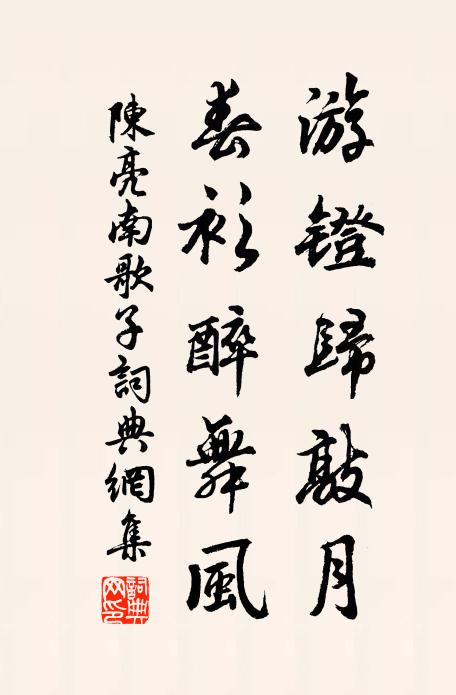 游鐙歸敲月
春衫醉舞風
陳亮南歌子詞典網集
詞典网印